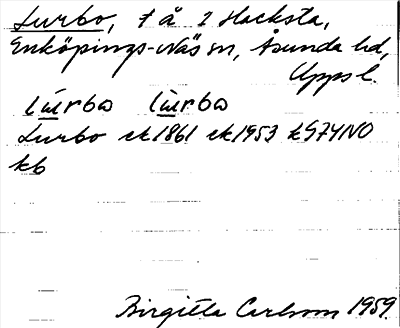 Lurbo, t å 2 Hacksta,
Enköpings-Näs sn, Åsunda hd,
Upps l.
lu̇rbo lu̇rbo
Lurbo ek 1861 ek 1953 kS7YNO
kb
Birgitta Carlsson 1959.